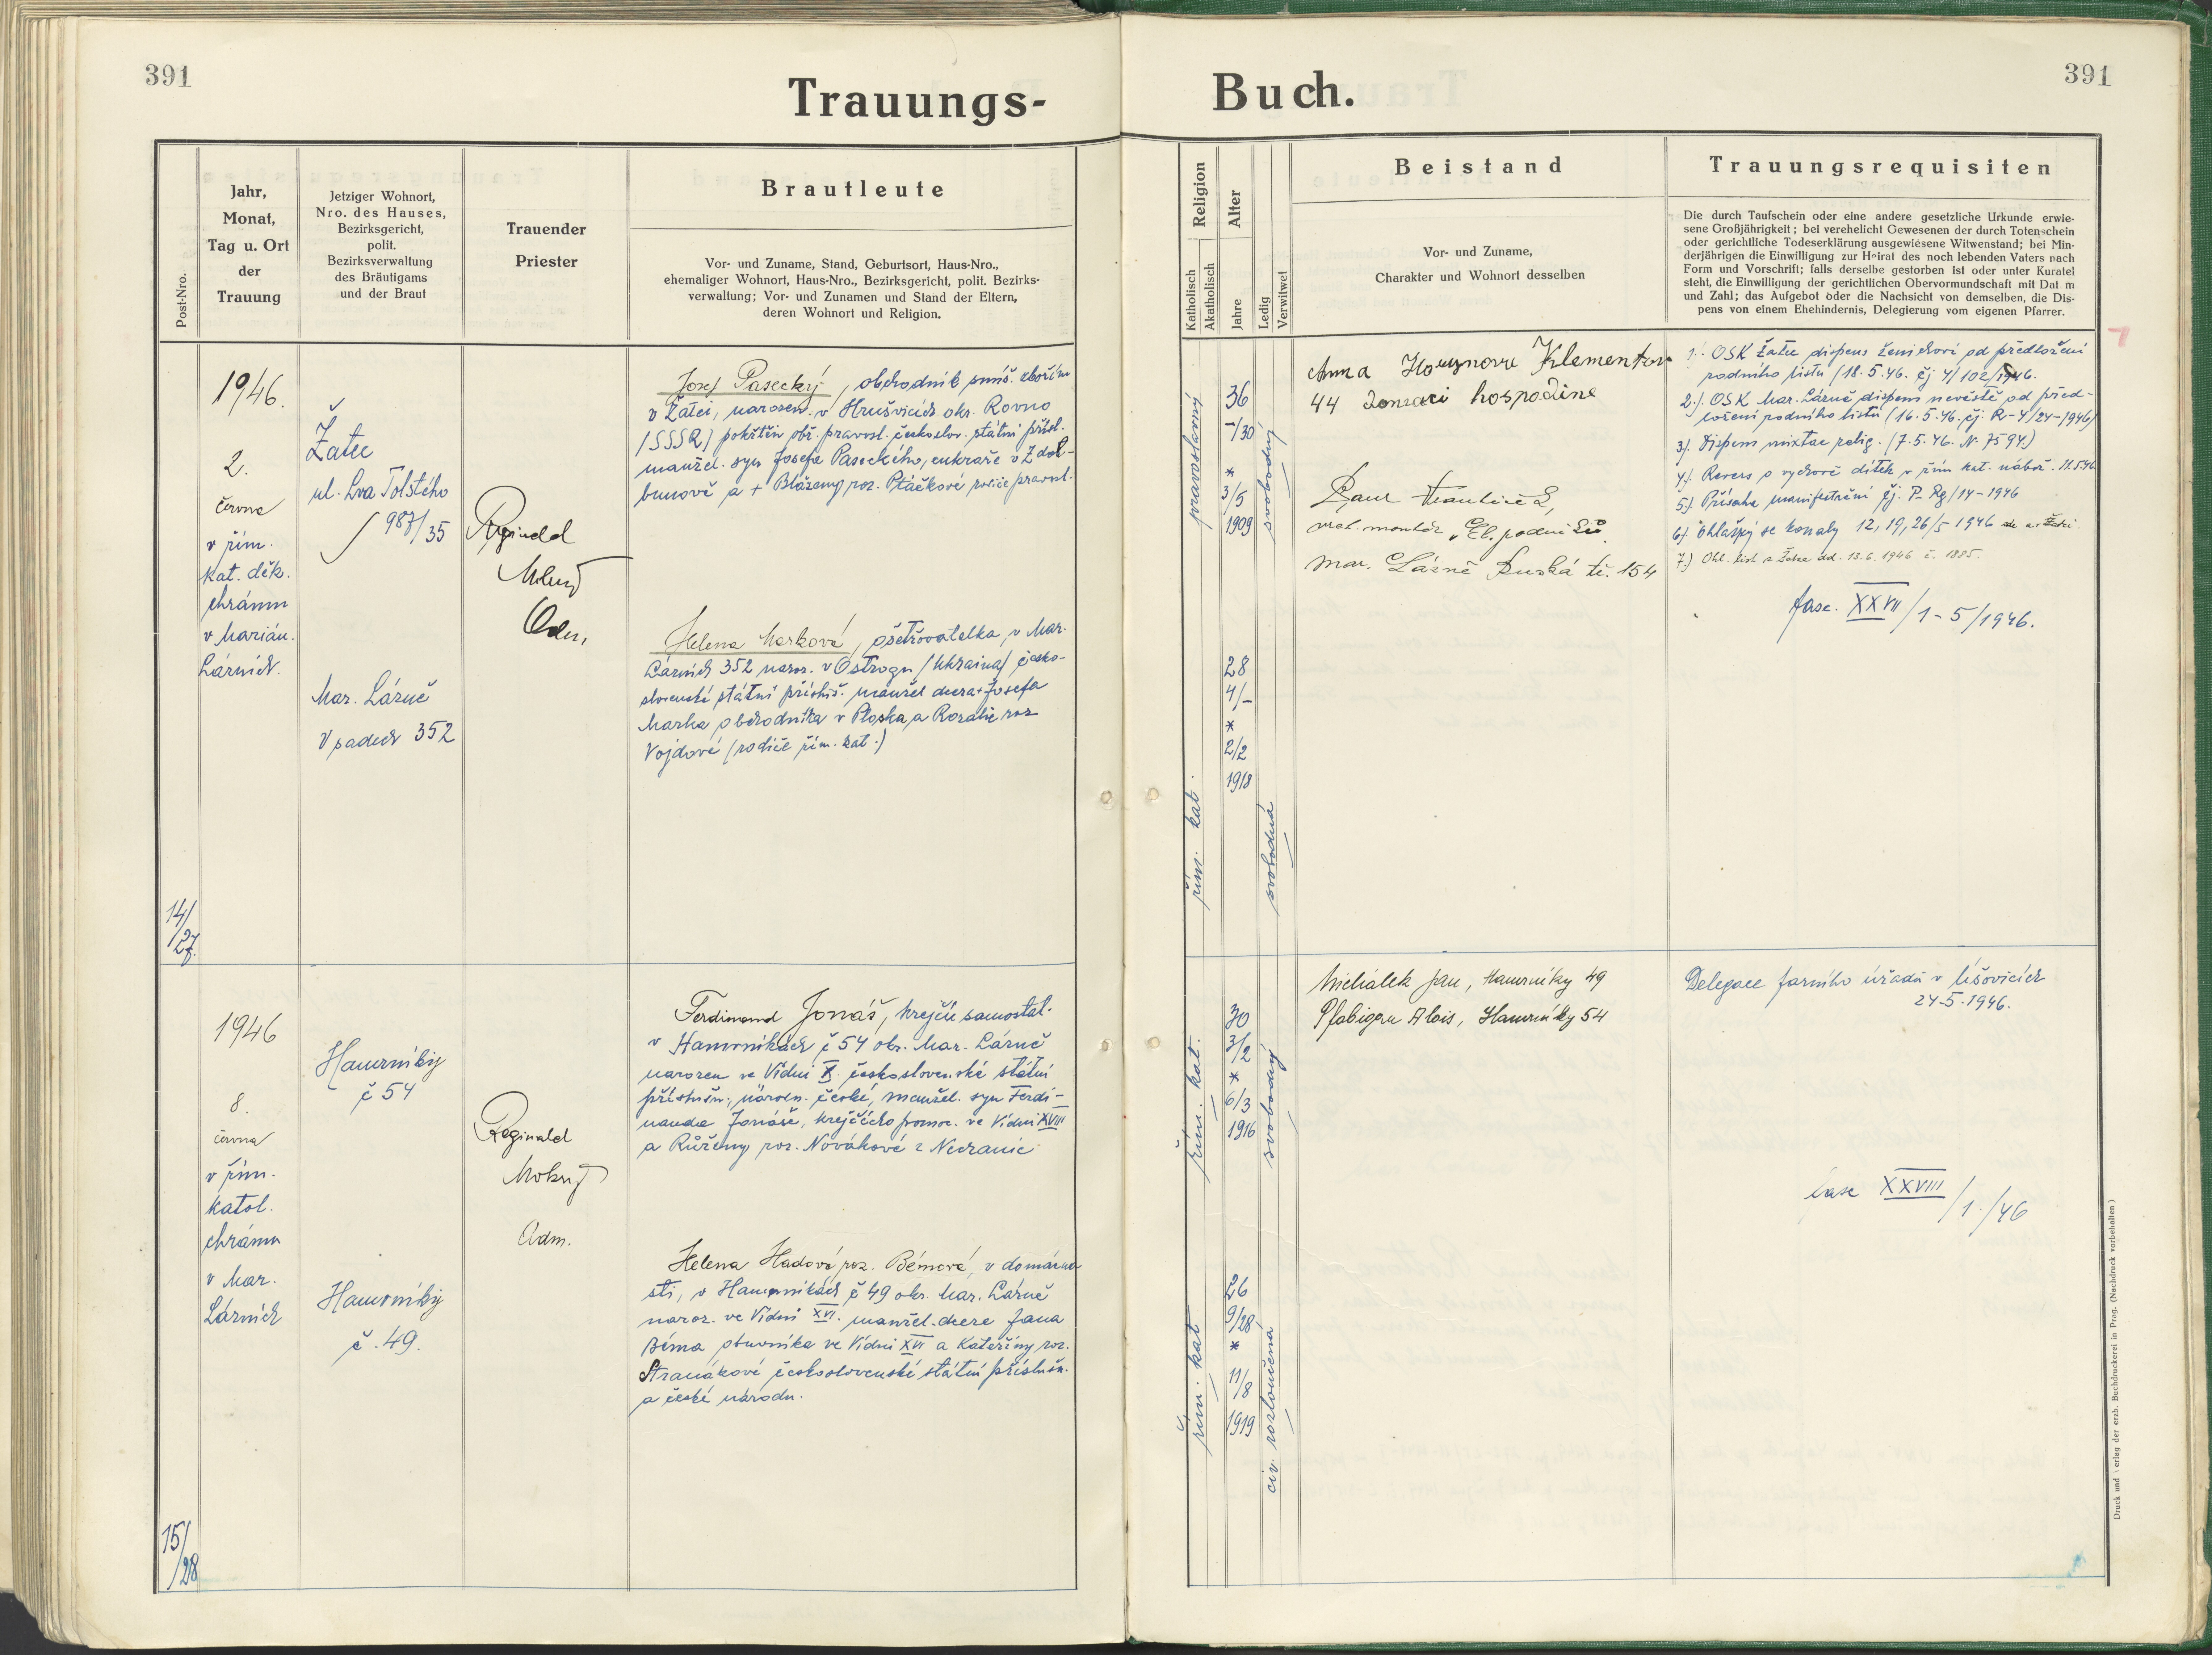 391
Trauungs-
Post-Nro.
Jahr,
Monat,
Tag u. Ort
der
Trauung
Jetziger Wohnort,
Nro. des Hauses,
Bezirksgericht,
polit.
Bezirksverwaltung
des Bräutigams
und der Braut
Trauender
Priester
Brautleute
Vor- und Zuname, Stand, Geburtsort, Haus-Nro.,
ehemaliger Wohnort, Haus-Nro., Bezirksgericht, polit. Bezirks-
verwaltung; Vor- und Zunamen und Stand der Eltern,
deren Wohnort und Religion.
1946.
2.
června
v řím.
kat. děk.
chrámu
v Marián.
Lázních.
14/
27.
Žatec
ul. Lva Tolstého
987/35
Mar. Lázně
V sadech 352
Reginald
Mokrý
Adm.
Josef Pasecký, obchodník smíš. zbožím
v Žatci, narozen v Hrušvicích okr. Rovno
(SSSR) pokřtěn obř. pravosl. českoslov. státní přísl.
manžel. syn Josefa Paseckého, cukraře v Zdol-
bunově a + Blaženy roz. Ptáčkové rodiče pravosl.
Helena Marková, ošetřovatelka, v Mar.
Lázních 352 naroz. v Ostrogu (Ukraina) česko-
slovenské státní přísluš. manžel dcera + Josefa
Marka obchodníka v Ploska, a Rozalie roz
Vojdové (rodiče řím. kat.)
1946
8.
června
v řím.
katol.
chrámu
v Mar.
Lázních
15/
28
Hamrníky
č 54
Hamrníky
č. 49.
Reginald
Mokrý
Adm.
Ferdinand Jonáš, krejčí samostat.
v Hamrníkách č 54 okr. Mar. Lázně
narozen ve Vídni X. československé státní
příslušn., národn. české, manžel. syn Ferdi-
nanda Jonáše, krejčího pomoc. ve Vídni XVIII
a Růženy roz. Novákové z Nechanic
Helena Hadová roz. Bémová, v domácno
sti, v Hamrníkách č 49 okr. Mar. Lázně
naroz. ve Vídni XVI. manžel. dcera Jana
Béma obuvníka ve Vídni XVI a Kateřiny roz.
Straňákové československé státní příslušn.
a české národn.
391
Buch.
Religion
Katholisch
Akatholisch
Alter
Jahre
Ledig
Verwitwet
Beistand
Vor- und Zuname,
Charakter und Wohnort desselben
Trauungsrequisiten
Die durch Taufschein oder eine andere gesetzliche Urkunde erwie-
sene Großjährigkeit; bei verehelicht Gewesenen der durch Totenschein
oder gerichtliche Todeserklärung ausgewiesene Witwenstand; bei Min-
derjährigen die Einwilligung zur Heirat des noch lebenden Vaters nach
Form und Vorschrift; falls derselbe gestorben ist oder unter Kuratel
steht, die Einwilligung der gerichtlichen Obervormundschaft mit Dat m
und Zahl; das Aufgebot oder die Nachsicht von demselben, die Dis-
pens von einem Ehehindernis, Delegierung vom eigenen Pfarrer.
pravoslavný
36
-/30
*
3/5
1909
svobodný
řím. kat.
28
4/-
*
2/2
1918
svobodná
Anna Klementov
44 hospodine
el. montér, "El. podniků"
Mar. Lázně Ruská tř. 154
1.) OSK Žatec dispens ženichovi od předložení
rodného listu (18.5.46. čj 4/102/1946.
2.) OSK Mar. Lázně dispens nevěstě od před-
ložení rodného listu (16.5.46. čj. R-4/24-1946)
3.) Dispens mixtae relig. (7.5.46. N. 7594.)
4.) Revers o výchově dítek v řím kat. nábož. 11.5.46
5.) Přísaha manifestační čj. P. Rg/14-1946
6.) Ohlášky se konaly 12, 19, 26/5 1946
7.) Ohl. list z Žatce dd. 13.6.1946 č. 1885.
fasc. XXVII/1-5/1946.
řím. kat.
30
3/2
*
6/3
1916
svobodný
řím. kat
26
9/28
*
11/8
1919
civ. rozloučena
Michálek Jan, Hamrníky 49
Pfabigan Alois, Hamrníky 54
Delegace farního úřadu v Úšovicích
24.5.1946.
fasc XXVIII/1./46
Druck und Verlag der erzb. Buchdruckerei in Prag. (Nachdruck vorbehalten)